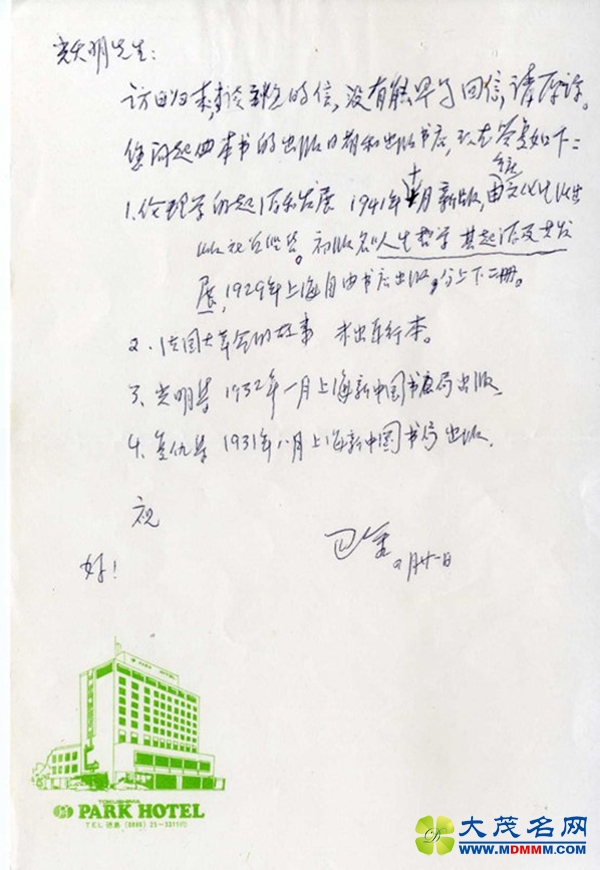 先生:
访日归来,读到您的信,没有能早日回信,请原谅。
您问起四本书的出版日期和出版书店,现在答复如下:
1.伦理学的起源和发展 1941年月新版,由重庆文化生活出
版社出版。初版名《人生哲学 其起源及其发
展,1929年上海自由书店出版,分上下二册。
2、法国大革命的故事 未出单行本。
3、光明集 1932年一月上海新中国书局出版、
4、复仇集 1931年八月上海新中国书局出版.
祝
好!
巴金
月廿一日
TOKUSHIMA
PARK HOTEL
TEL 徳島 (0886) 25-3311(代)
大茂名网
WWW.MDMMM.COM